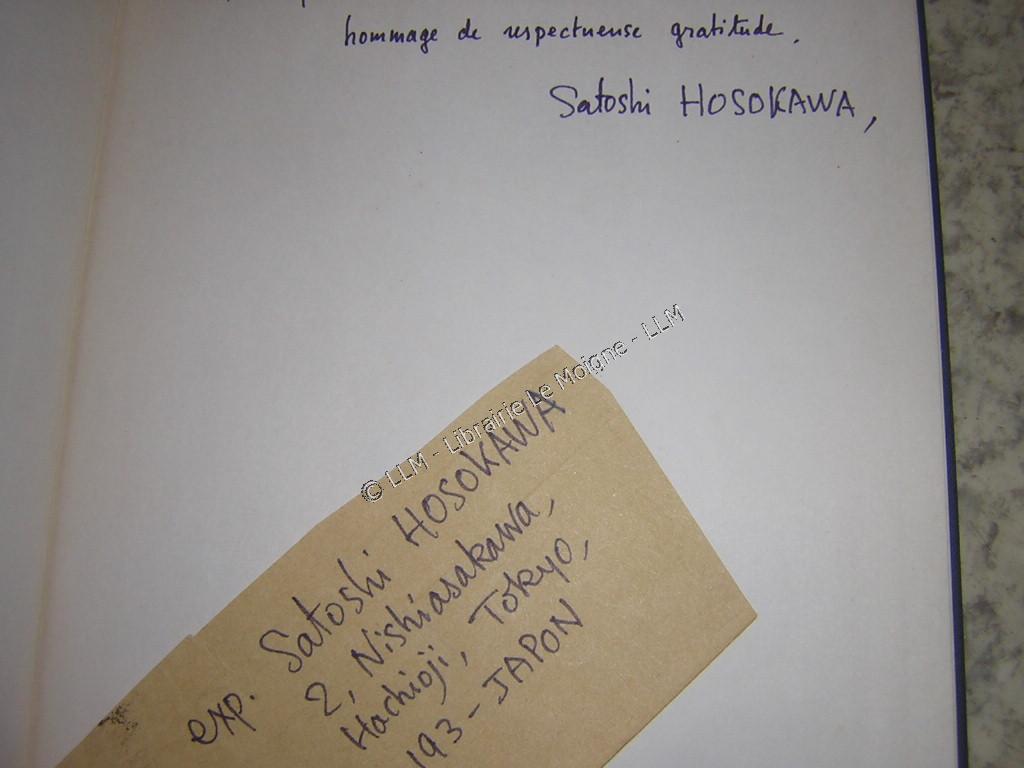 hommage de respectueuse gratitude.
Satoshi HOSOKAWA,
© LLM - Librairie Le Moigne - LLM
exp. Satoshi HOSOKAWA
2, Nishiasakawa,
Hachioji, Tokyo,
193 - JAPON